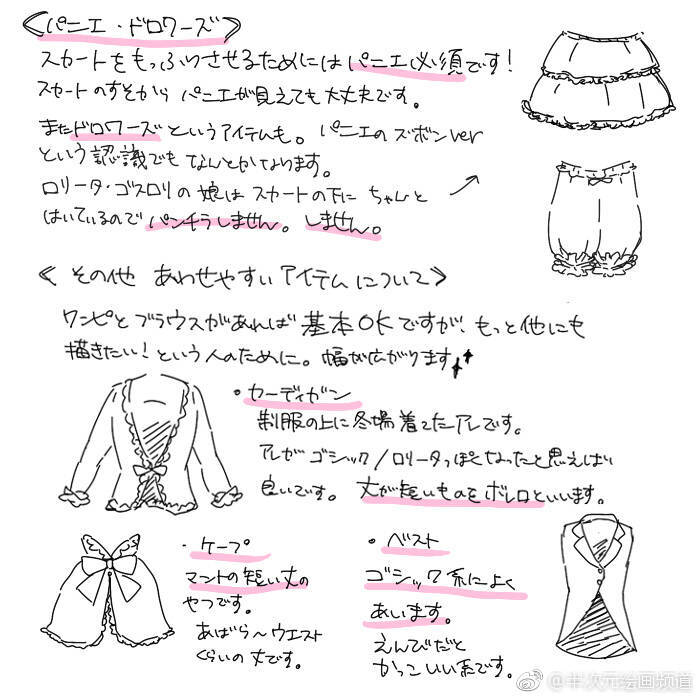 ≪パニエ・ドロワーズ≫
スカートをもっふりさせるためにはパニエ必須です！
スカートのすそから パニエが見えても大丈夫です。
またドロワーズというアイテムも。パニエのズボンver
という認識でもなんとかなります。
ロリータ・ゴスロリの娘は スカートの下に ちゃんと
はいているので パンチラしません。しません。
≪その他 あわせやすいアイテムについて≫
ワンピとブラウスがあれば 基本OKですが、もっと他にも
描きたい！という人のために。幅が広がります
・カーディガン
制服の上に冬場着てたアレです。
アレがゴシック/ロリータっぽくなったと思えば
良いです。丈が短いものをボレロといいます。
・ケープ
マントの短い丈の
やつです。
あばら～ウエスト
くらいの丈です。
・ベスト
ゴシック系によく
あいます。
えんびだと
かっこいい系です。
@半次元绘画频道